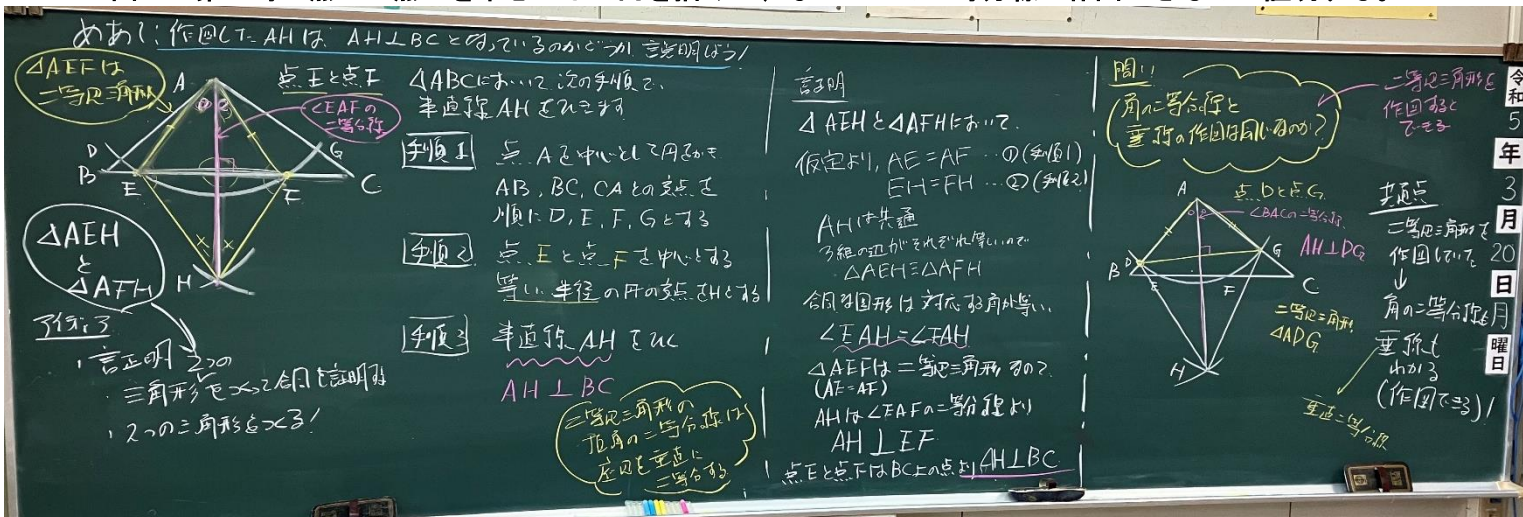 めあて：作図したAHは AH⊥BCとなっているのかどうか 説明しよう！
△AEFは
二等辺三角形
点Eと点F
∠EAFの
二等分線
A
D
B
E
F
G
C
H
△AEH
と
△AFH
アイディア
・証明 2つの
三角形をつくって合同を証明する
・2つの三角形をつくる！
△ABCにおいて次の手順で、
半直線AHをひきます
手順1 点Aを中心として円をかき
AB, BC, CAとの交点を
順にD, E, F, Gとする
手順2 点Eと点Fを中心とする
等しい半径の円の交点をHとする
手順3 半直線AHをひく
AH⊥BC
二等辺三角形の
頂角の二等分線は
底辺を垂直に
二等分する
証明
△AEHと△AFHにおいて、
仮定より, AE=AF …①(手順1)
EH=FH …②(手順2)
AHは共通
3組の辺がそれぞれ等しいので
△AEH≡△AFH
合同な図形は対応する角が等しい
∠EAH=∠FAH
△AEFは二等辺三角形なので
(AE=AF)
AHは∠EAFの二等分線より
AH⊥EF
点Eと点FはBC上の点より AH⊥BC
問い!
角の二等分線と
垂線の作図は同じなのか？
二等辺三角形を
作図すると
できる
点Dと点G
∠BACの二等分線
A
B
D
E
F
G
C
H
AH⊥DG
二等辺三角形
△ADG
共通点
二等辺三角形を
作図していて
↓
角の二等分線も
垂線も
わかる
(作図できる)!
垂直二等分線
令和
5
年
3
月
20
日
月
曜
日